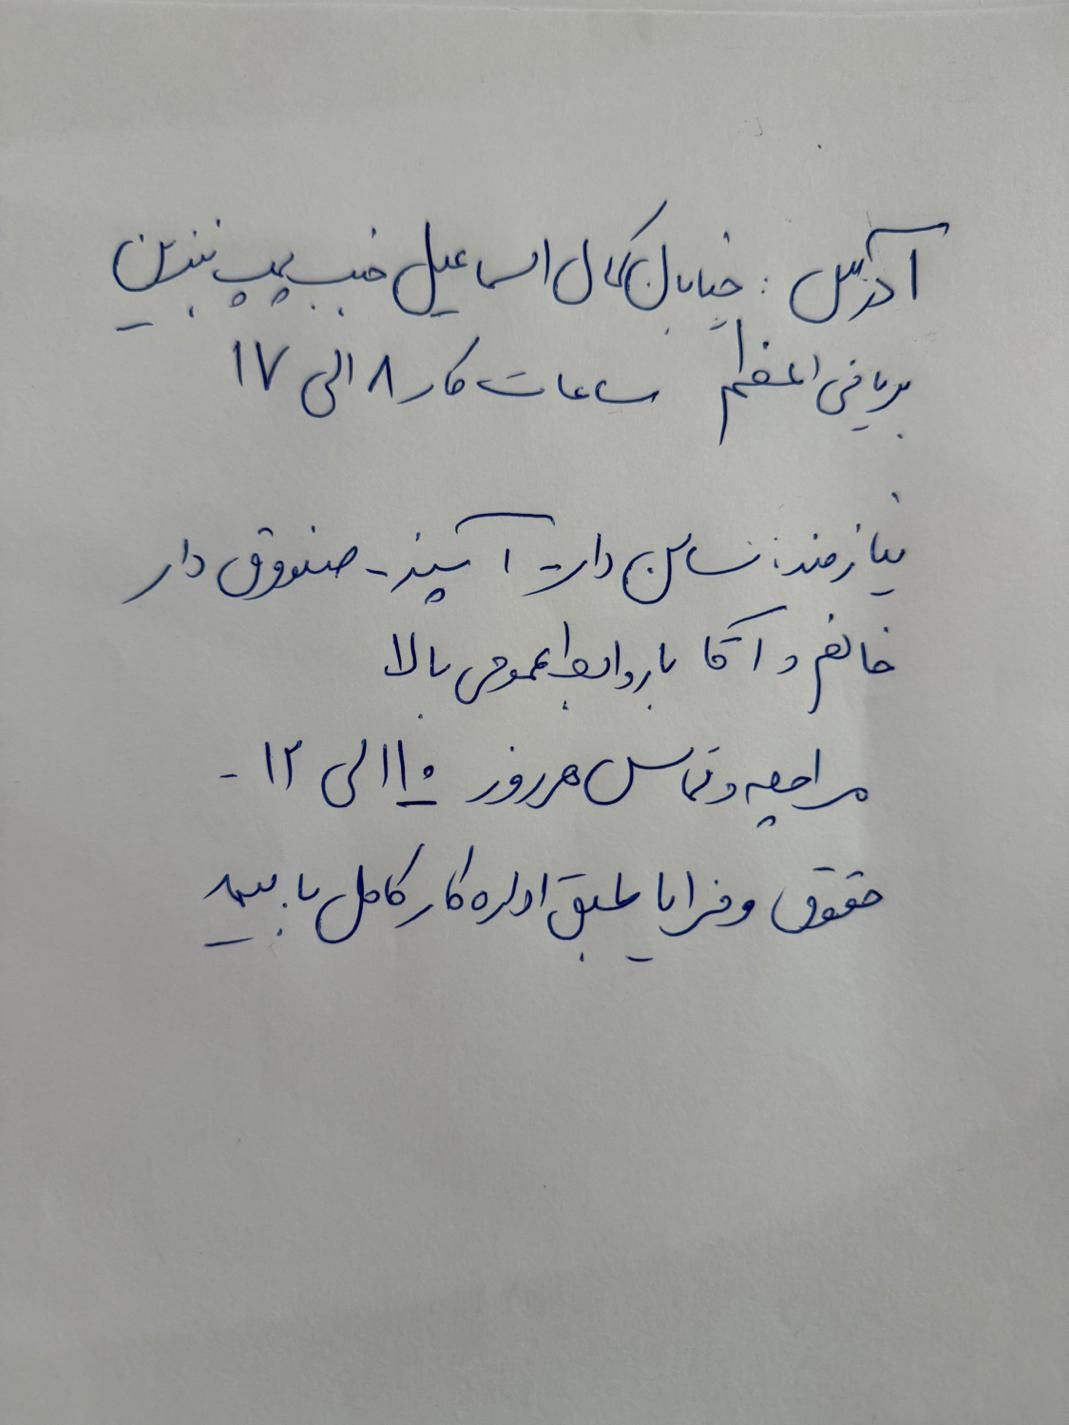 آدرس : خیابان کمال اسماعیل جنب پمپ بنزین
بریانی اعظم ساعات کار ۸ الی ۱۷
نیازمند: سالن دار - آشپز - صندوق دار
خانم و آقا با روابط عمومی بالا
مراجعه و تماس هر روز ۱۰ الی ۱۲ -
حقوق و مزایا طبق اداره کار کامل با بیمه